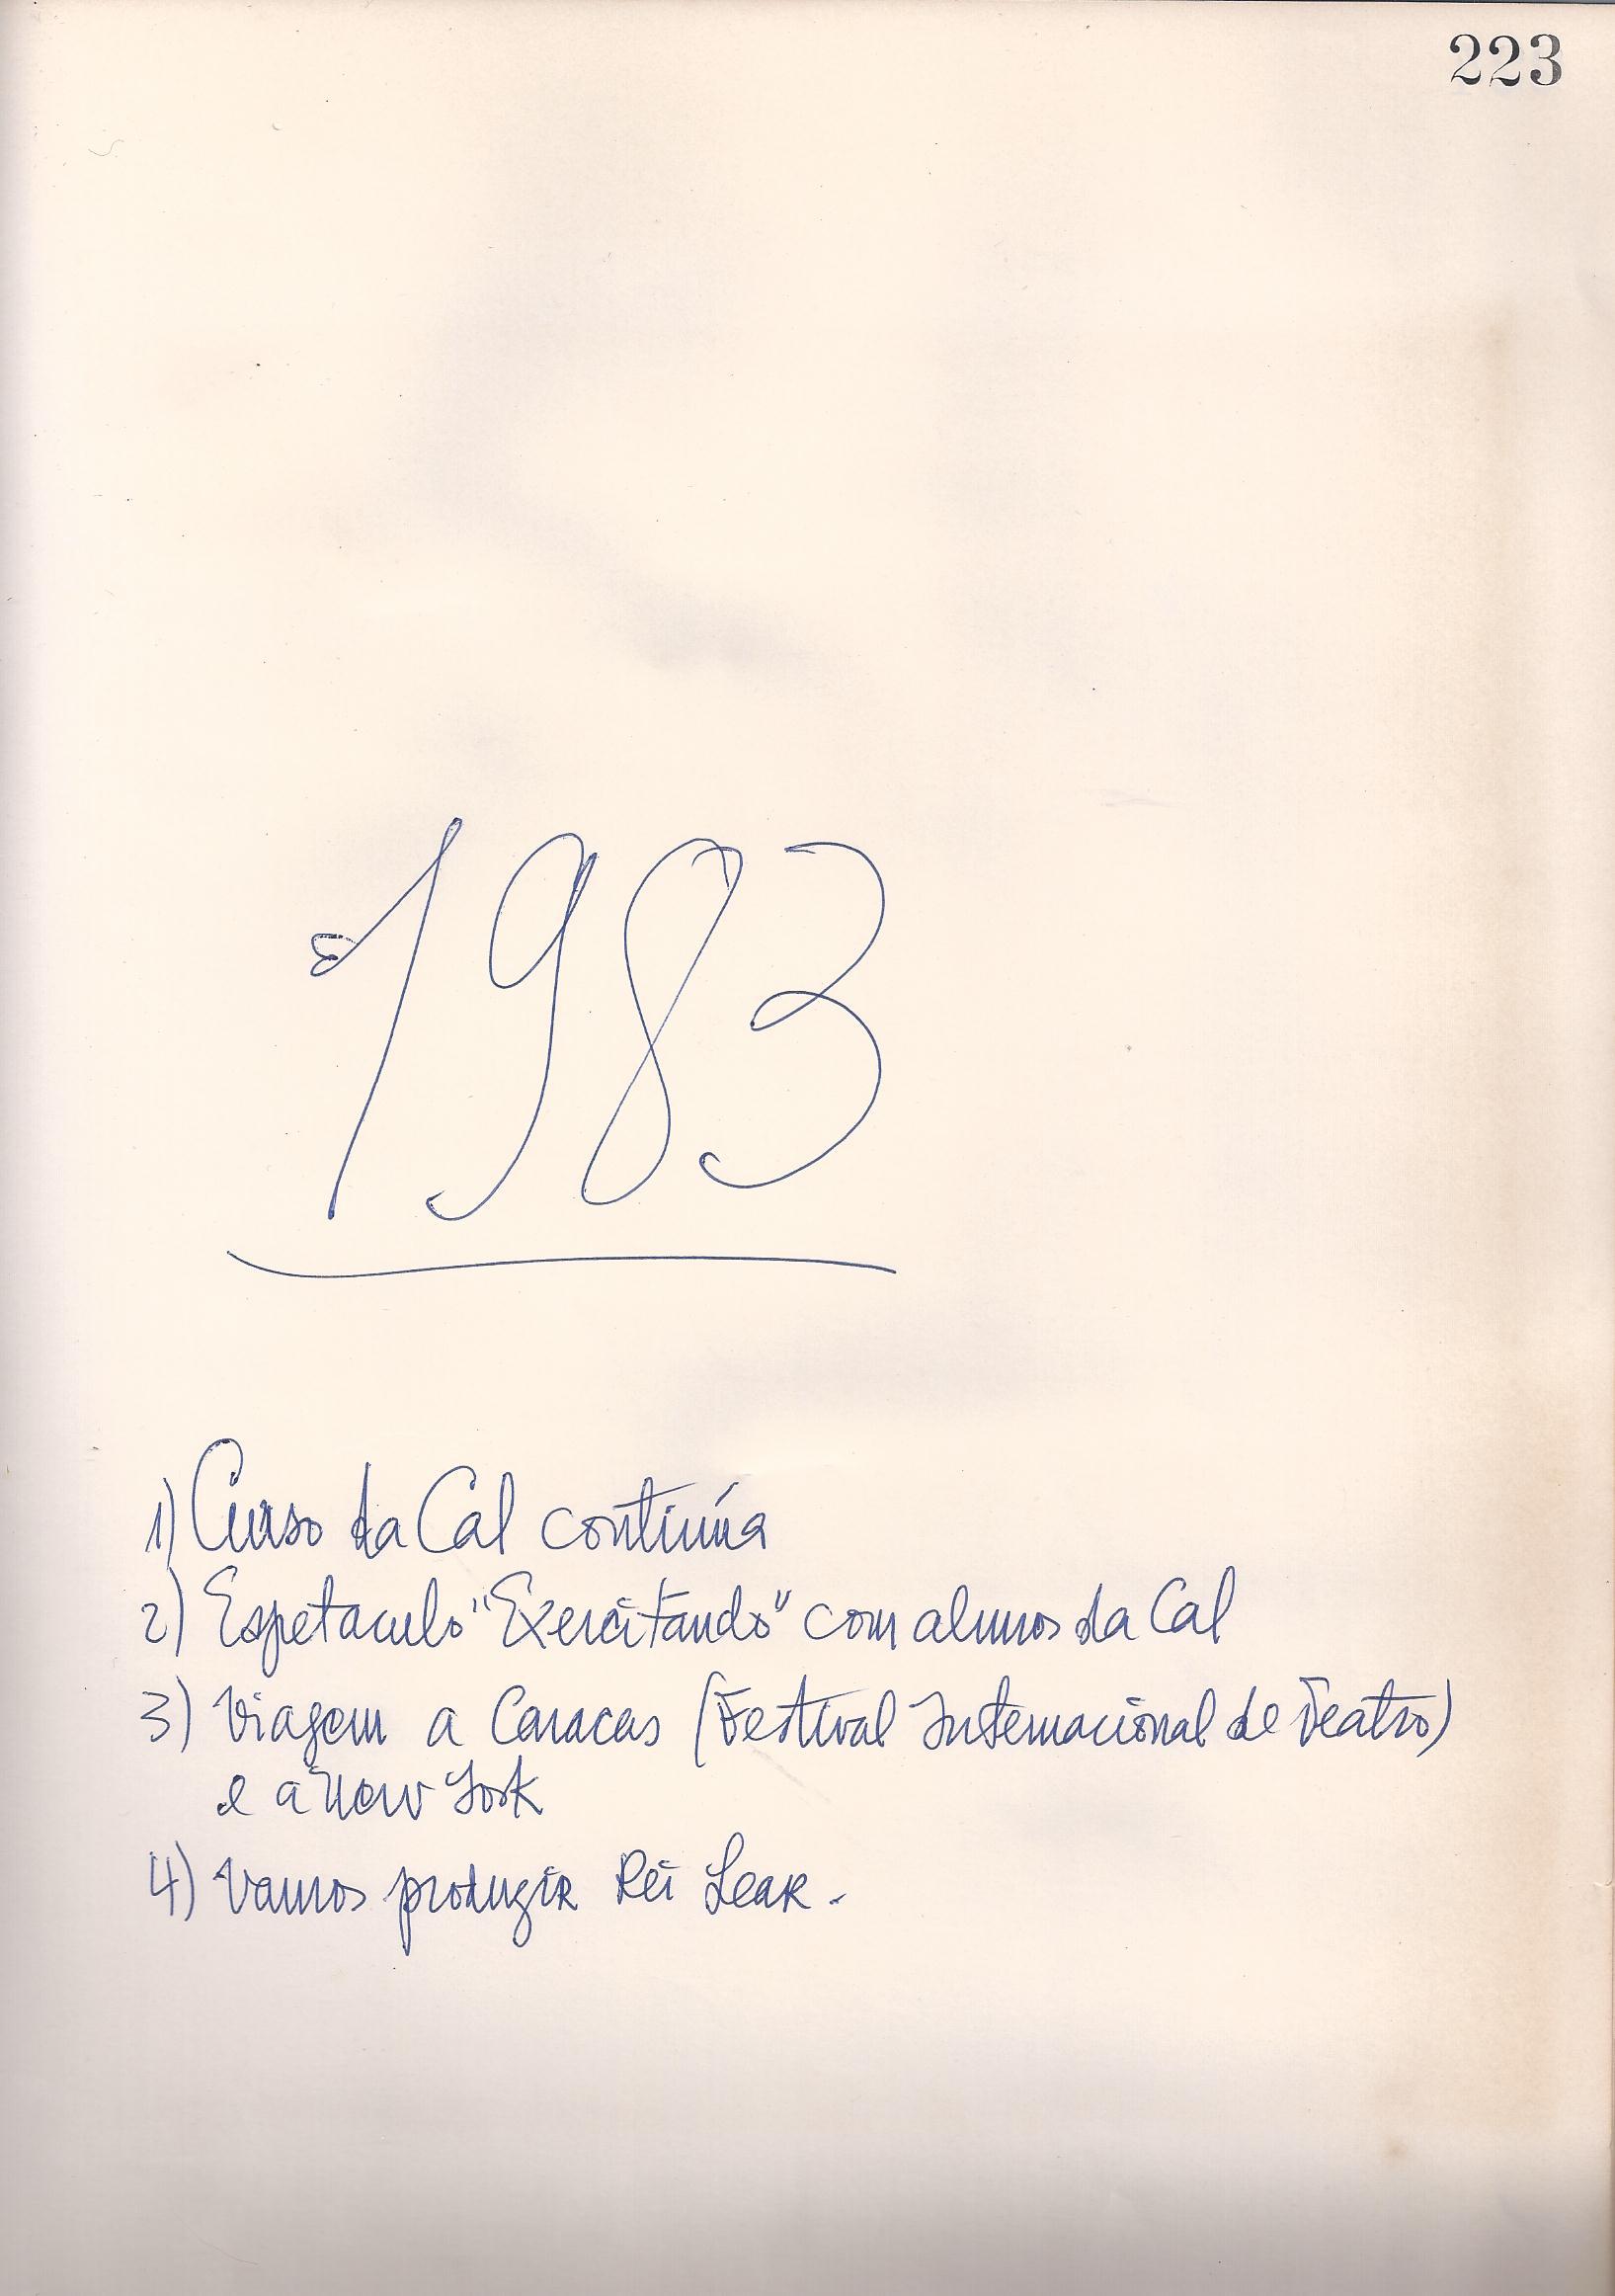 223
1983
1) Curso da Cal continúa
2) Espetaculo "Exercitando" com alunos da Cal
3) Viagem a Caracas (Festival Internacional de Teatro)
e a New York
4) Vamos produzir Rei Lear.